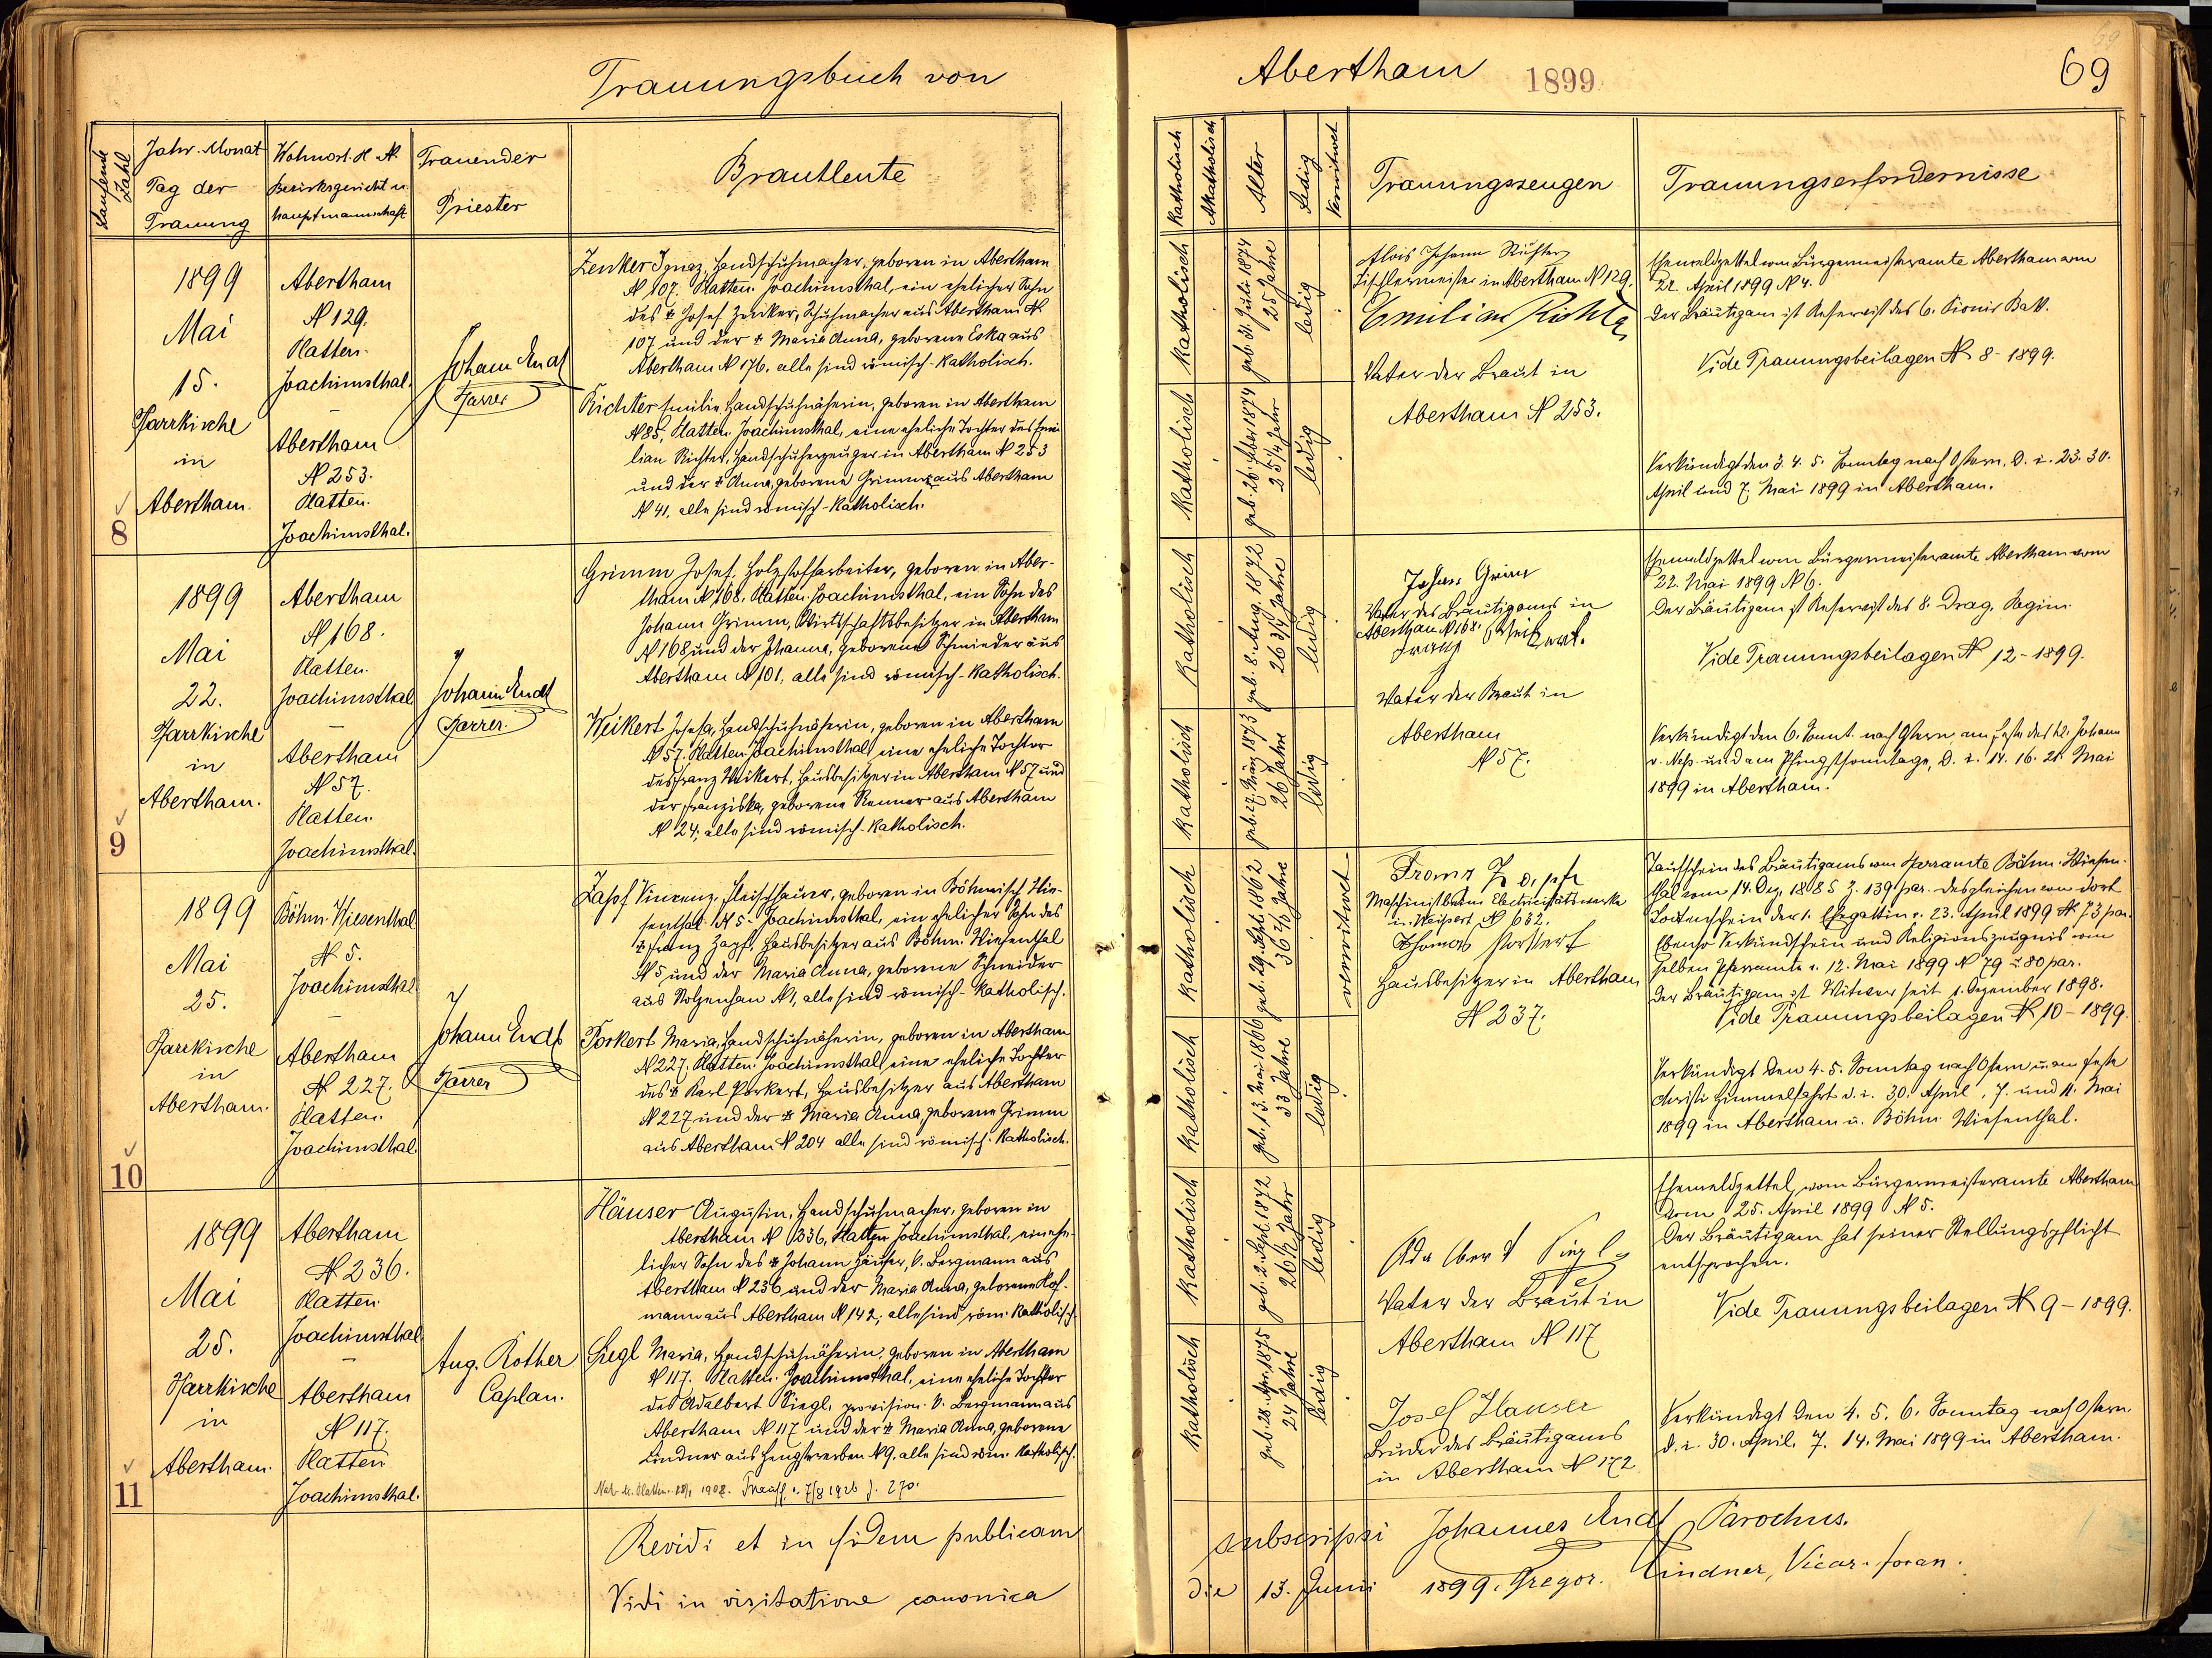 Trauungsbuch von
Laufende Zahl
Jahr. Monat
Tag der
Trauung
Wohnort. H N.
Bezirksgericht u.
Hauptmannschaft
Trauender
Priester
Brautleute
1899
Mai
15.
Pfarrkirche
in
Abertham.
8
Abertham
N 129.
Platten.
Joachimsthal.
Abertham
N 253.
Platten.
Joachimsthal.
Johann Endt
Pfarrer
Zenker Ignaz, Handschuhmacher, geboren in Abertham
N 107. Platten. Joachimsthal, ein ehelicher Sohn
des † Josef Zenker, Schuhmacher aus Abertham N
107 und der † Maria Anna, geborene Eska aus
Abertham N 176. alle sind römisch-katholisch.
Richter Emilie, Handschuhnäherin, geboren in Abertham
N 85, Platten. Joachimsthal, eine eheliche Tochter des Emi-
lian Richter, Handschuherzeuger in Abertham N 253
und der † Anna, geborene Grimm aus Abertham
N 41. alle sind römisch-katholisch.
1899
Mai
22.
Pfarrkirche
in
Abertham.
9
Abertham
N 168.
Platten.
Joachimsthal
Abertham
N 57.
Platten.
Joachimsthal.
Johann Endt
Pfarrer.
Grimm Josef, Holzstoffarbeiter, geboren in Aber-
tham N 168, Platten. Joachimsthal, ein Sohn des
Johann Grimm, Wirtschaftsbesitzer in Abertham
N 168 und der Johanna, geborene Schmieder aus
Abertham N 101, alle sind römisch-katholisch.
Weikert Josefa, Handschuhnäherin, geboren in Abertham
N 57. Platten. Joachimsthal, eine eheliche Tochter
des Franz Weikert, Hausbesitzer in Abertham N 57 und
der Franziska, geborene Renner aus Abertham
N 24; alle sind römisch-katholisch.
1899
Mai
25.
Pfarrkirche
in
Abertham.
10
Böhm. Wiesenthal
N 5.
Joachimsthal
Abertham
N 227.
Platten.
Joachimsthal.
Johann Endt
Pfarrer
Zapf Vincenz, Fleischhauer, geboren in Böhmisch Wie-
senthal N 5. Joachimsthal, ein ehelicher Sohn des
† Franz Zapf, Hausbesitzer aus Böhm. Wiesenthal
N 5 und der Maria Anna, geborene Schneider
aus Stolzenhan N 1, alle sind römisch-katholisch.
Porkert Maria, Handschuhnäherin, geboren in Abertham
N 227. Platten. Joachimsthal, eine eheliche Tochter
des † Karl Porkert, Hausbesitzer aus Abertham
N 227 und der † Maria Anna, geborene Grimm
aus Abertham N 204 alle sind römisch-katholisch.
1899
Mai
25.
Pfarrkirche
in
Abertham.
11
Abertham
N 236.
Platten
Joachimsthal
Abertham
N 117.
Platten
Joachimsthal.
Aug. Rother
Caplan.
Häuser Augustin, Handschuhmacher, geboren in
Abertham N 336, Platten Joachimsthal, ein ehe-
licher Sohn des † Johann Häuser, k. Bergmann aus
Abertham N 236 und der Maria Anna, geborene Hof-
mann aus Abertham N 142; alle sind röm. katholisch.
Siegl Maria, Handschuhnäherin, geboren in Abertham
N 117. Platten. Joachimsthal, eine eheliche Tochter
des Adalbert Siegl, provision. k. Bergmann aus
Abertham N 117 und der † Maria Anna, geborene
Lindner aus Hengstererben N 9. alle sind röm. katholisch.
7/8 1926 270.
Revidi et in fidem publicam
Vidi in visitatione canonica
Abertham 1899
69
69
Katholisch
Akatholisch
Alter
Ledig
Verwitwet
Trauungszeugen
Trauungserfordernisse
Katholisch
geb. 31. Juli 1874
25 Jahre
ledig
Alois Johann Richter
Tischlermeister in Abertham N 129.
Emilian Richter
Vater der Braut in
Abertham N 253.
Ehemeldzettel vom Bürgermeisteramte Abertham vom
22. April 1899 N 4.
Der Bräutigam ist Reservist des 6. Pionir Batt.
Vide Trauungsbeilagen N 8-1899.
Katholisch
geb. 26. Feber 1874
25 1/4 Jahr
ledig
Verkündigt den 3. 4. 5. Sonntag nach Ostern, d. i. 23. 30.
April und 7. Mai 1899 in Abertham.
Katholisch
geb. 8. Aug. 1872
26 3/4 Jahre
ledig
Johann Grimm
Vater des Bräutigams in
Abertham N 168.
Franz Weikert.
Vater der Braut in
Abertham
N 57.
Ehemeldzettel vom Bürgermeisteramte Abertham vom
22. Mai 1899 N 6.
Der Bräutigam ist Reservist des 8. Drag. Regim.
Vide Trauungsbeilagen N 12-1899.
Katholisch
geb. 27. März 1873
26 Jahre
ledig
Verkündigt den 6. Sonnt. nach Ostern am Feste des hl. Johann
v. Nep. und am Pfingstsonntage, d. i. 14. 16. 21. Mai
1899 in Abertham.
Katholisch
geb. 29. Sept. 1862
verwitwet
Franz Zapf
Maschinist beim Electricitätswerke
in Weipert N 632.
Thomas Porkert
Hausbesitzer in Abertham
N 237.
Taufschein des Bräutigams vom Pfarramte Böhm. Wiesen-
thal vom 14. Dez. 1885 Z. 139 par. desgleichen von dort
Todtenschein der 1. Ehegattin v. 23. April 1899 N 73 par.
Ebenso Verkündschein und Religionszeugnis vom
selben Pfarramte v. 12. Mai 1899 N 79 - 80 par.
Der Bräutigam ist Witwer seit 1. Dezember 1898.
Vide Trauungsbeilagen N 10-1899.
Katholisch
geb. 13. Mai 1866
33 Jahre
ledig
Verkündigt den 4. 5. Sonntag nach Ostern u. am Feste
Christi Himmelfahrt d. i. 30. April, 7. und 11. Mai
1899 in Abertham u. Böhm. Wiesenthal.
Katholisch
geb. 2. Sept. 1872
26 1/2 Jahr
ledig
Adalbert Siegl
Vater der Braut in
Abertham N 117
Ehemeldzettel vom Bürgermeisteramte Abertham
vom 25. April 1899 N 5.
Der Bräutigam hat seiner Stellungspflicht
entsprochen.
Vide Trauungsbeilagen N 9-1899.
Katholisch
geb. 28. Apr. 1875
24 Jahre
ledig
Josef Hauser
Bruder des Bräutigams
in Abertham N 172
Verkündigt den 4. 5. 6. Sonntag nach Ostern.
d. i. 30. April. 7. 14. Mai 1899 in Abertham.
subscripsi Johannes Endt Parochus.
die 13. Junii 1899. Gregor. Lindner, Vicar. foran.